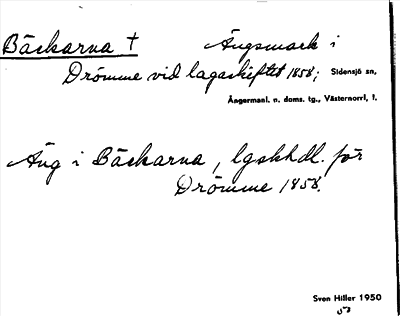 Bäckarna † Ängsmark i
Drömme vid lagaskiftet 1858; Sidensjö sn,
Ångermanl. n. doms. tg., Västernorrl, l.
Äng i Bäckarna, lgskhdl. för
Drömme 1858.
Sven Hiller 1950